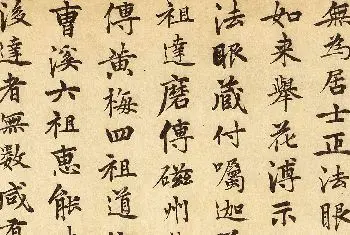 無為居士正法眼
如来舉花溥示
法眼蔵付囑迦
祖達磨傳磁州
傳黄梅四祖道
曹溪六祖惠能
後達者無数咸有